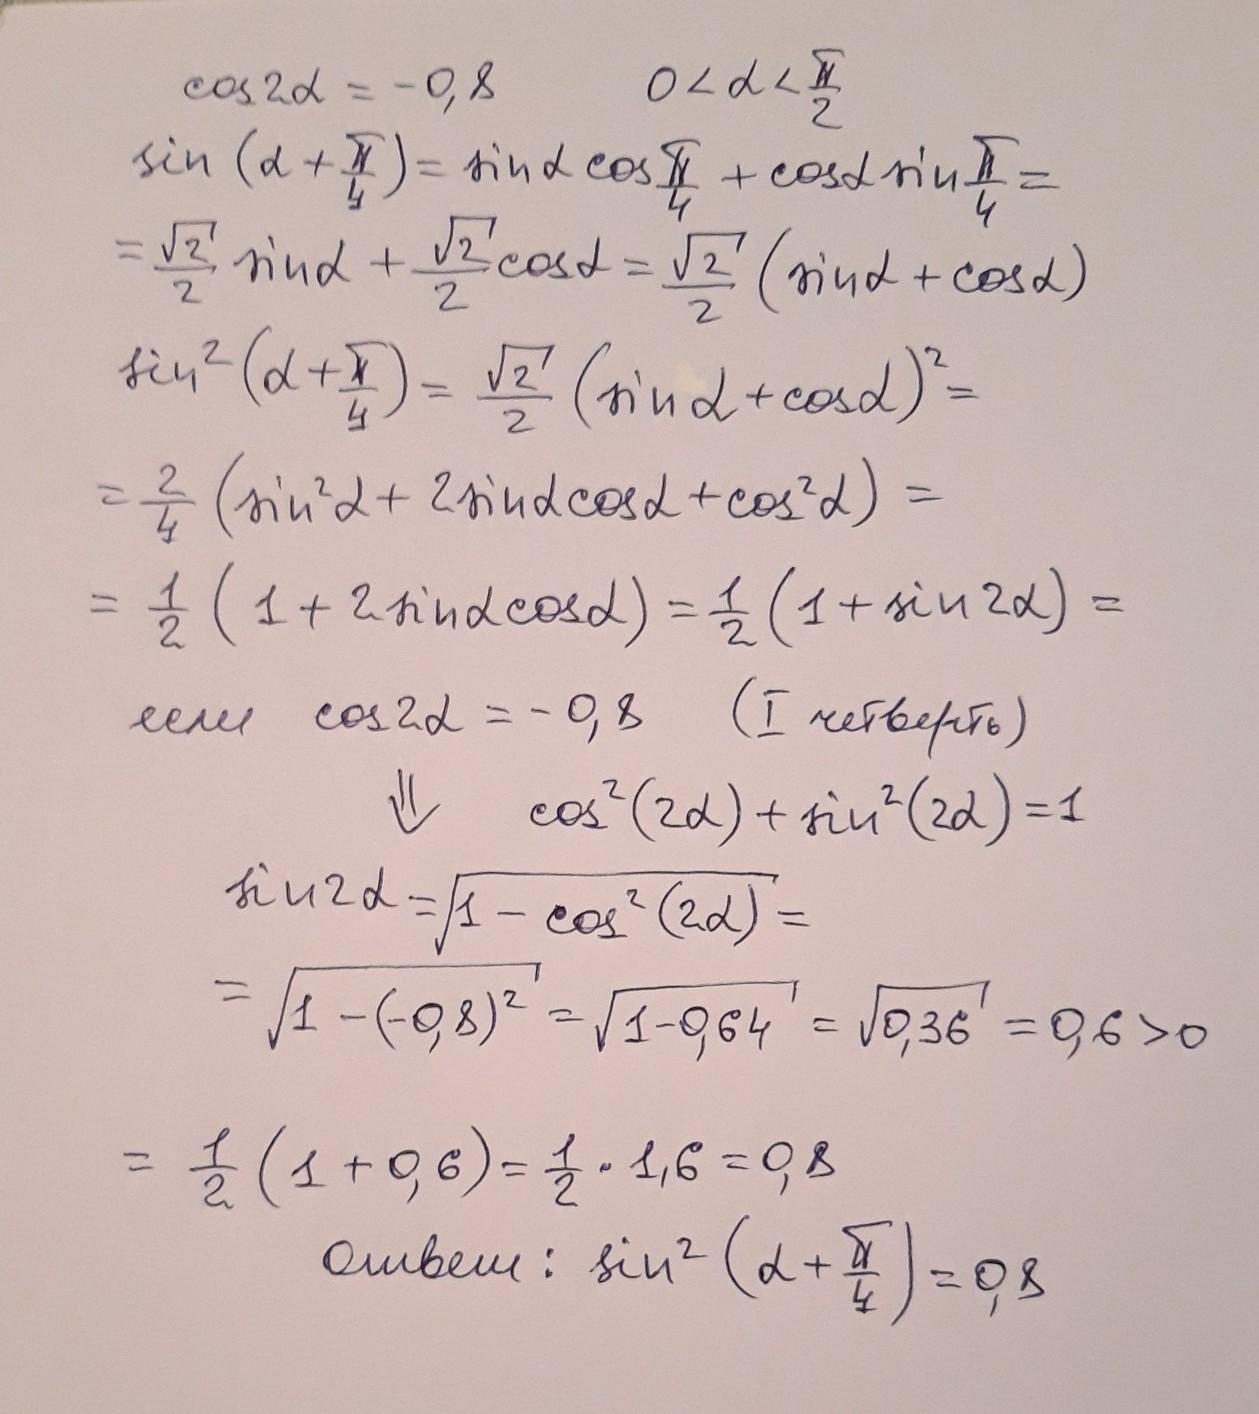 cos2α = -0,8 0 < α < π/2
sin (α + π/4) = sinα cos π/4 + cosα sin π/4 =
= √2/2 sinα + √2/2 cosα = √2/2 (sinα + cosα)
sin² (α + π/4) = √2/2 (sinα + cosα)² =
= 2/4 (sin²α + 2sinαcosα + cos²α) =
= 1/2 (1 + 2sinαcosα) = 1/2 (1 + sin2α) =
если cos2α = -0,8 (I четверть)
⇓ cos²(2α) + sin²(2α) = 1
sin2α = √(1 - cos²(2α)) =
= √(1 - (-0,8)²) = √(1-0,64) = √0,36 = 0,6 > 0
= 1/2 (1 + 0,6) = 1/2 · 1,6 = 0,8
Ответ: sin² (α + π/4) = 0,8